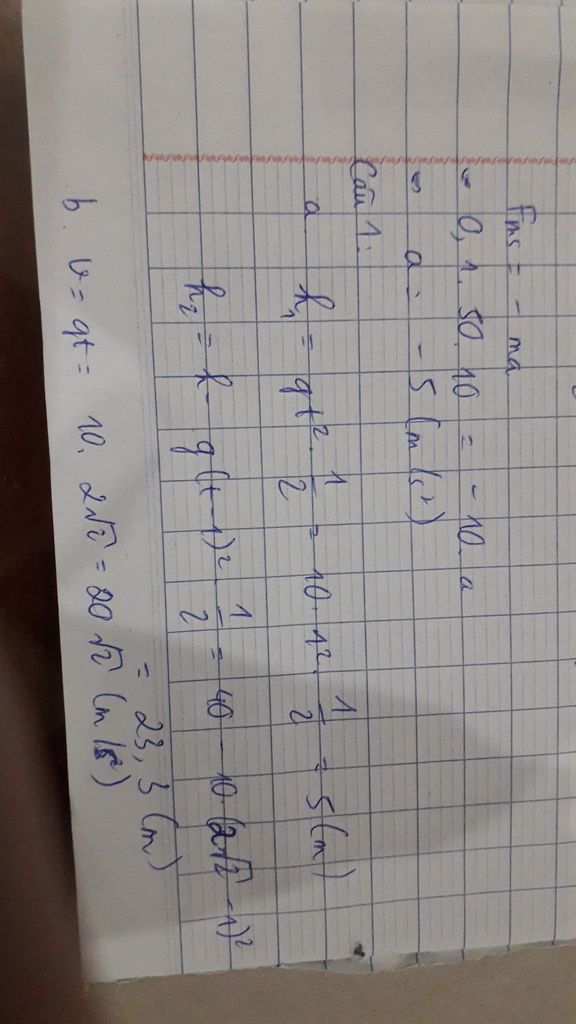 Fms = - ma
0,1. 50. 10 = - 10. a
a = - 5 (m/s²)
Câu 1:
a h₁ = gt². 1/2 = 10. 1². 1/2 = 5 (m)
h₂ = h - g(t-1)². 1/2 = 40 - 10. (2√2 - 1)²
= 23,3 (m)
b. v = gt = 10. 2√2 = 20√2 (m/s²)